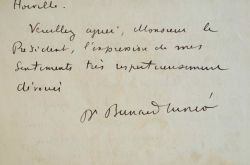 Veuillez agréer, Monsieur le
Président, l'expression de mes
sentiments très respectueusement
dévoués
Dr Bernard